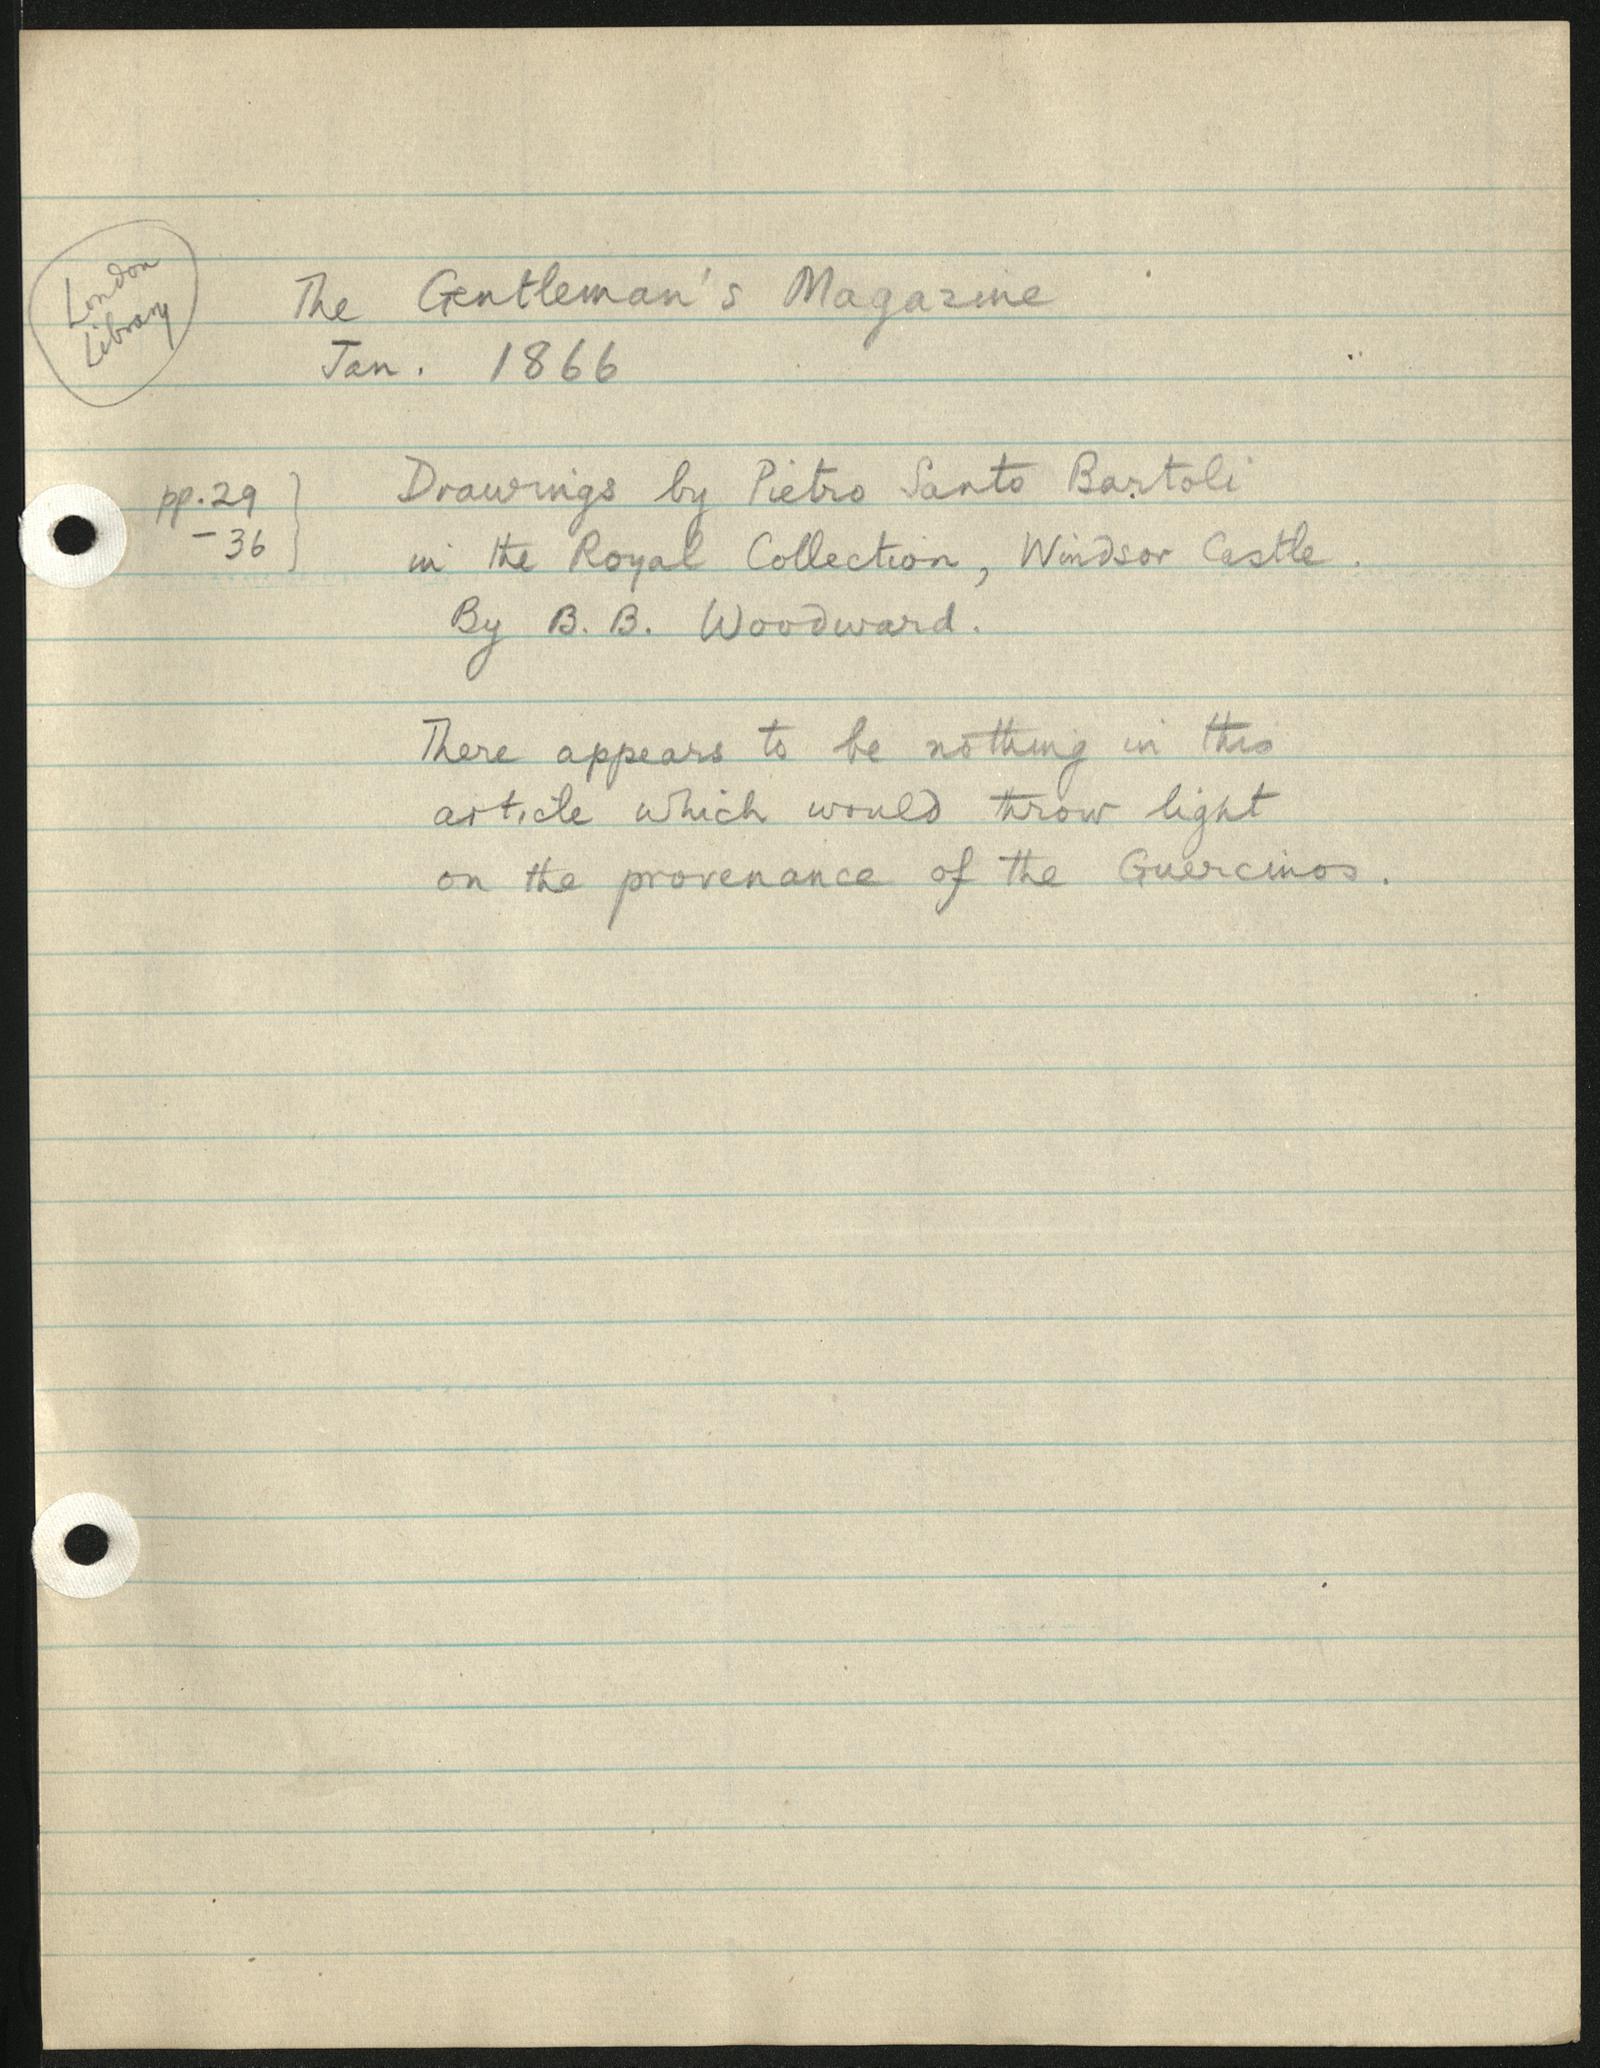 London
Library
The Gentleman's Magazine
Jan. 1866
pp. 29
- 36
Drawings by Pietro Santo Bartoli
in the Royal Collection, Windsor Castle.
By B. B. Woodward.
There appears to be nothing in this
article which would throw light
on the provenance of the Guercinos.